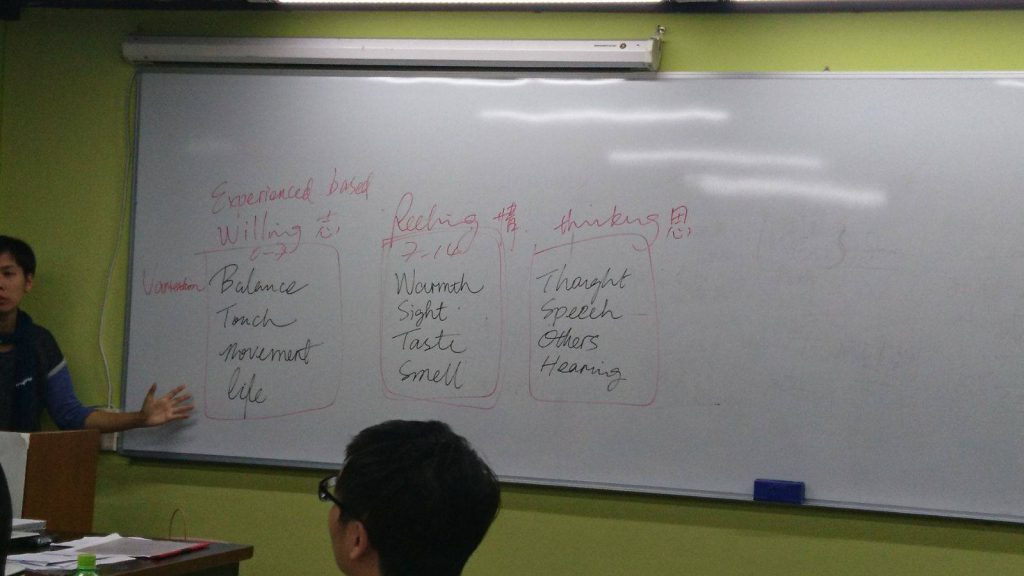 Experienced based
Willing 志
0-7
Balance
Touch
Movement
life
Feeling 情
7-14
Warmth
Sight
Taste
Smell
thinking 思
Thought
Speech
Others
Hearing